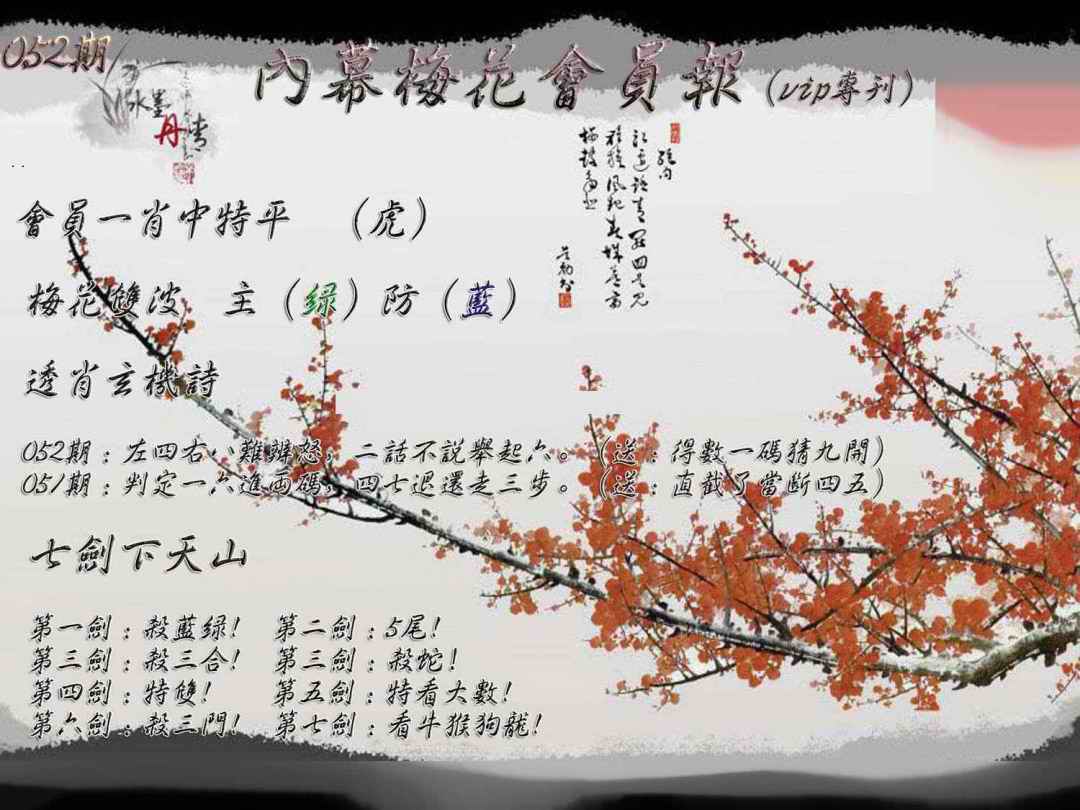 052期
內幕梅花會員報(vip專刊)
水墨
丹青
會員一肖中特平 (虎)
梅花雙波 主(绿)防(藍)
透肖玄機詩
052期:左四右八難辨怒,二話不説舉起六。(送:得數一碼猜九開)
051期:判定一六進両碼,四七退還走三步。(送:直截了當斷四五)
七劍下天山
第一劍:殺藍绿! 第二劍:5尾!
第三劍:殺三合! 第三劍:殺蛇!
第四劍:特雙! 第五劍:特看大數!
第六劍:殺三門! 第七劍:看牛猴狗龍!